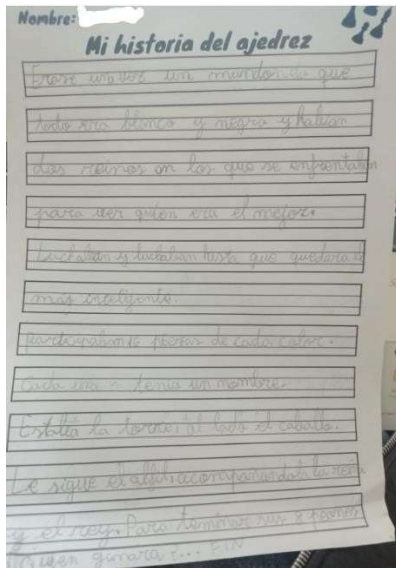 Nombre:
Mi historia del ajedrez
Erase una vez un mundo que
todo era blanco y negro y habian
dos reinos en los que se enfrentaban
para ver quién era el mejor.
Luchaban y luchaban hasta que quedara el
más inteligente.
Participaban 16 piezas de cada color.
Cada una tenia un nombre.
Estaba la torre, al lado el caballo.
Le sigue el alfil, acompañandola la reina
y el rey. Para terminar sus 8 peones
Quien ganara?... FIN